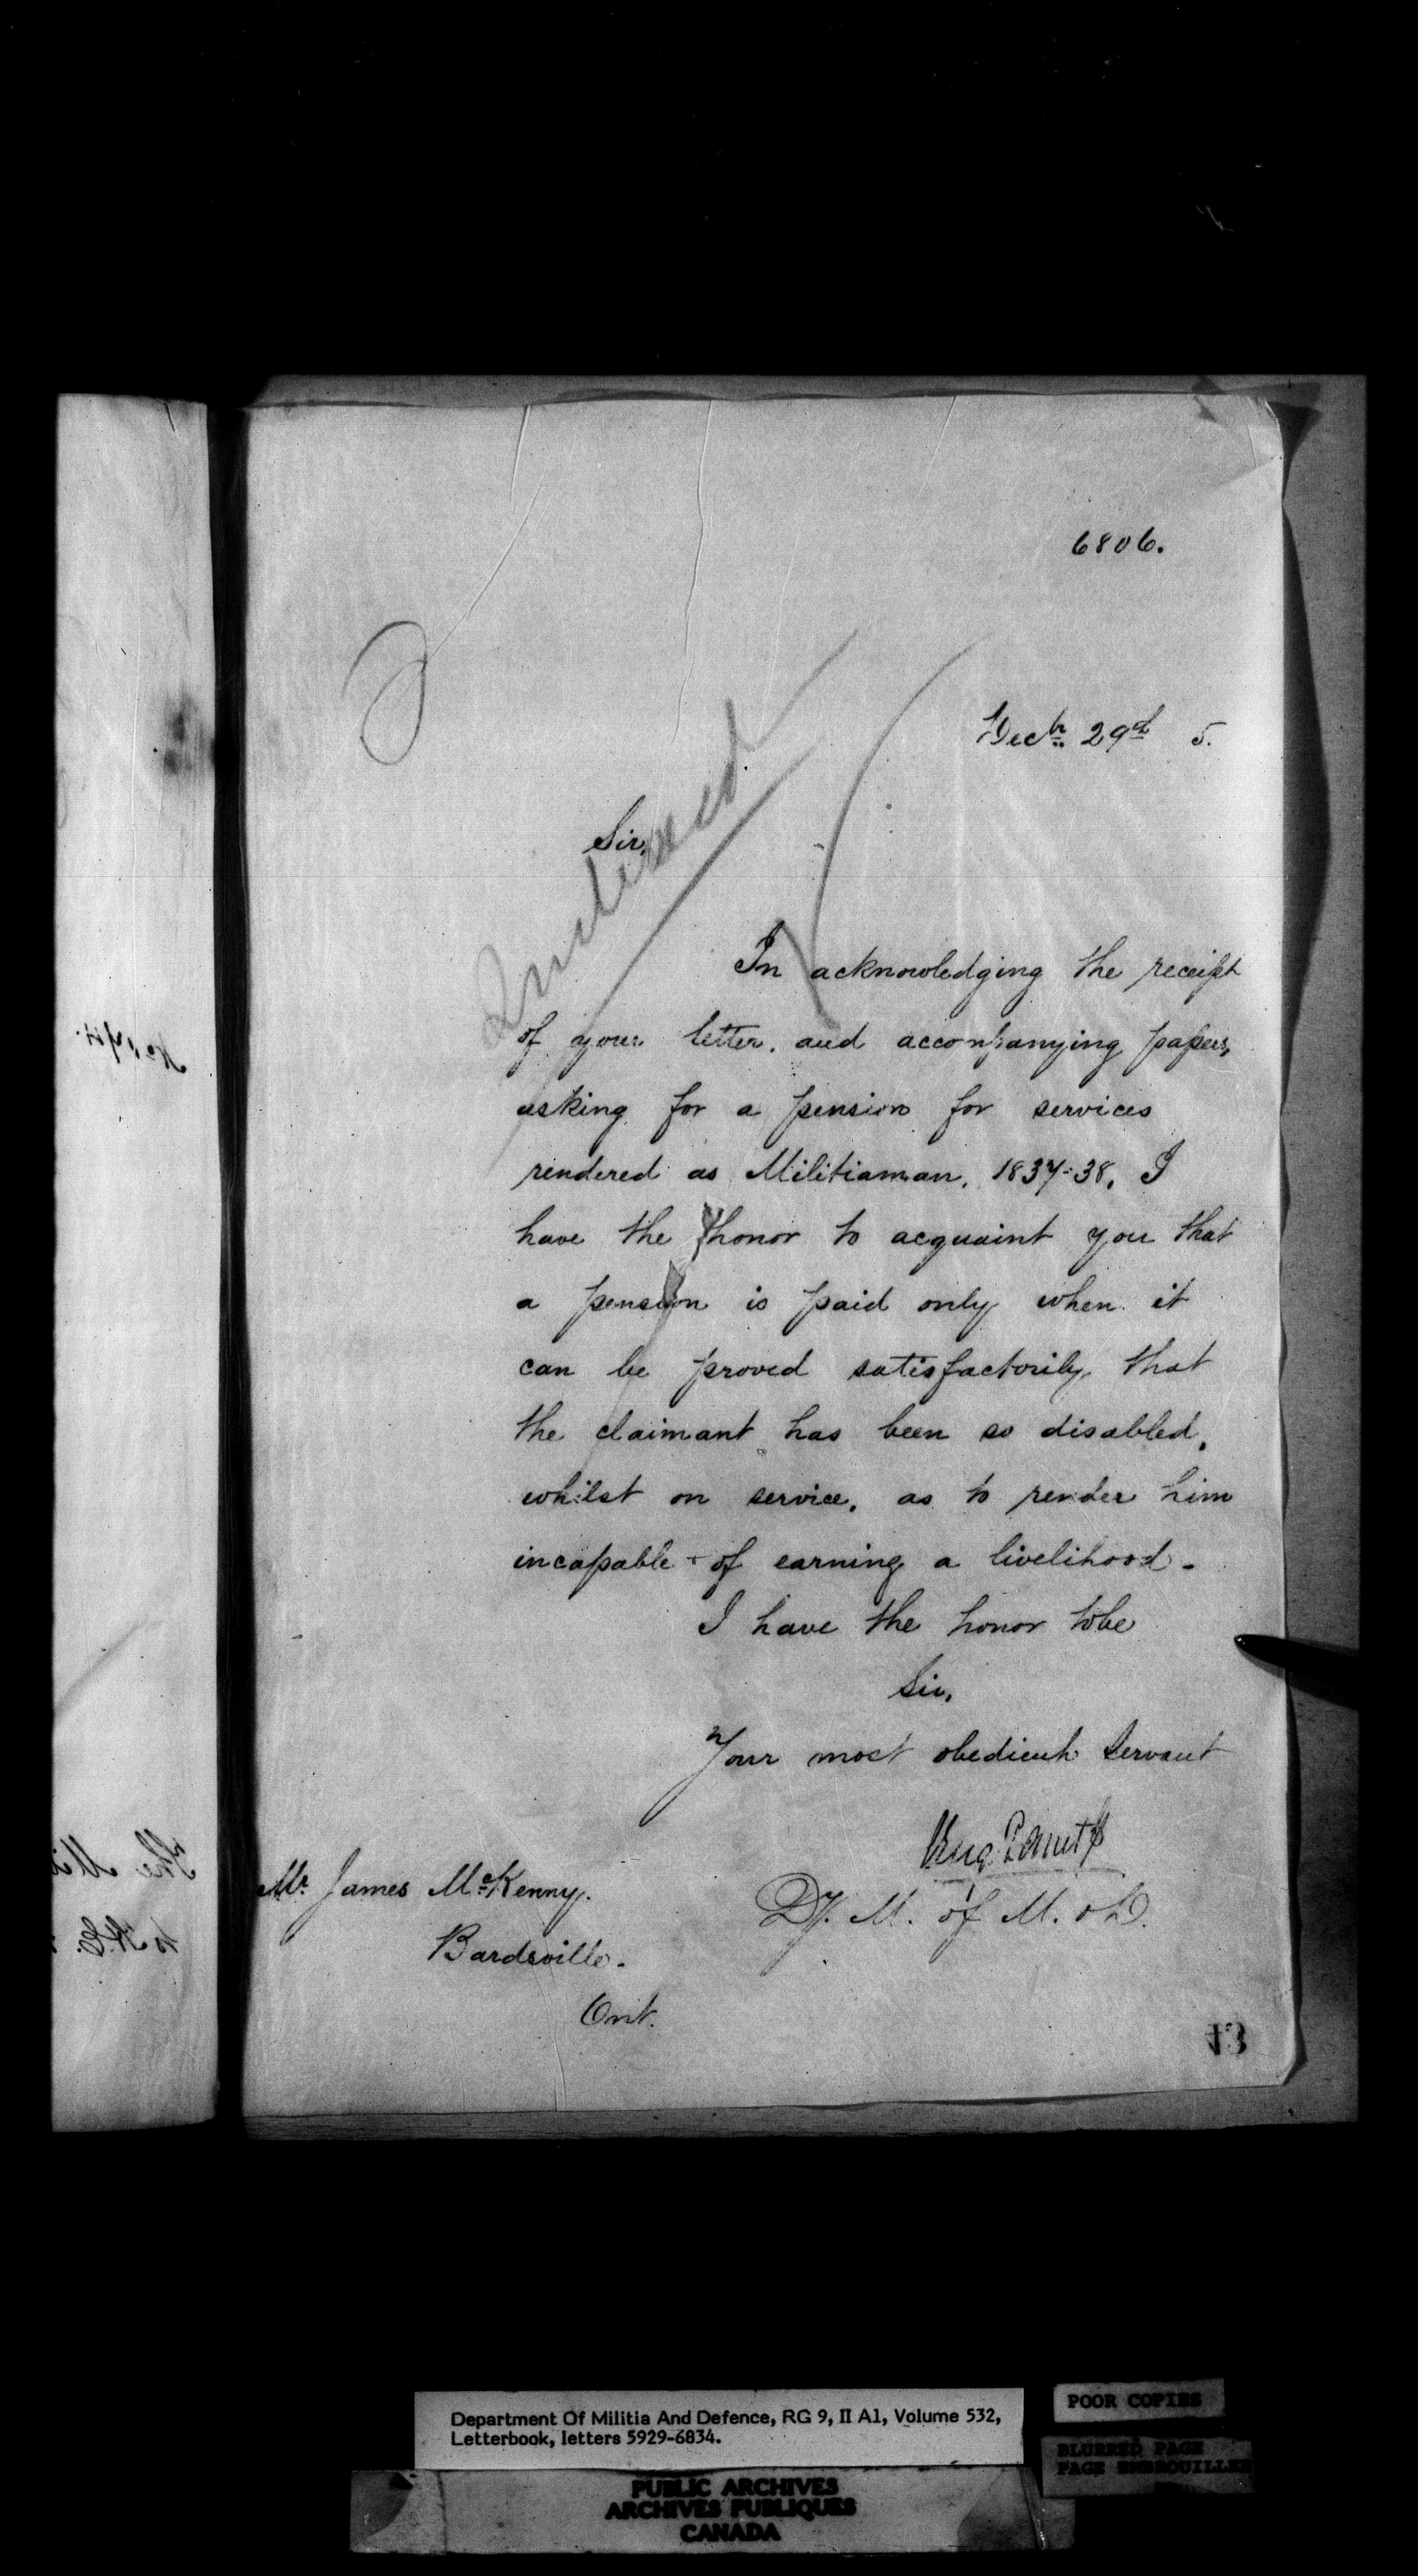 6806.
Decr. 29th 5.
Indexed
Sir,
In acknowledging the receipt
of your letter, and accompanying papers,
asking for a pension for services
rendered as Militiaman, 1837-38, I
have the honor to acquaint you that
a pension is paid only when it
can be proved satisfactorily that
the claimant has been so disabled,
whilst on service, as to render him
incapable of earning a livelihood.
I have the honor to be
Sir,
Your most obedient Servant
Eug. Panet
Dy. M. of M. & D.
Mr. James McKenny.
Bardsville.
Ont.
13
Department Of Militia And Defence, RG 9, II A1, Volume 532,
Letterbook, letters 5929-6834.
POOR COPIES
BLURRED PAGE
PAGE EMBROUILLEE
PUBLIC ARCHIVES
ARCHIVES PUBLIQUES
CANADA